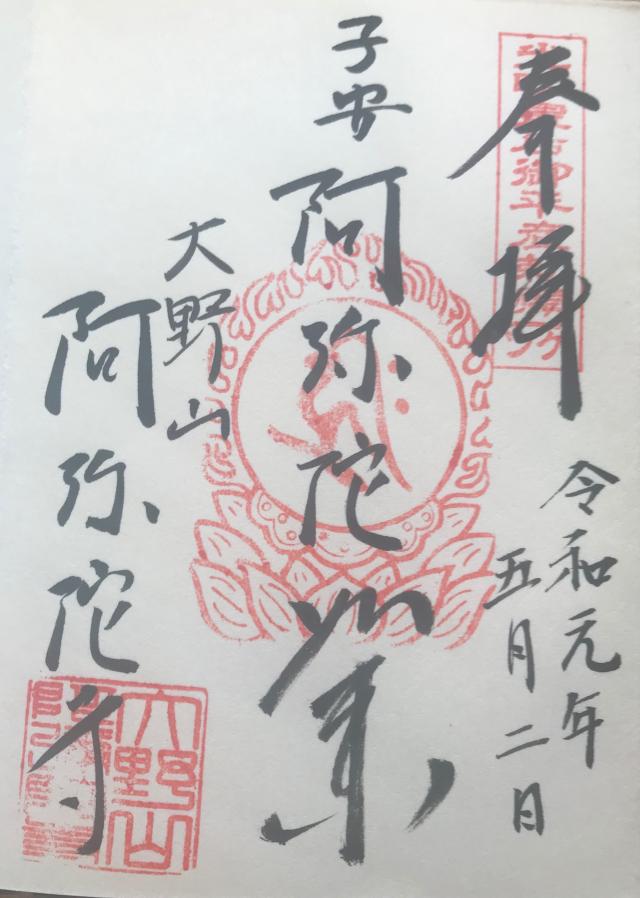 奉拝
令和元年
五月二日
子安
阿弥陀如来
大野山
阿弥陀寺
大野山